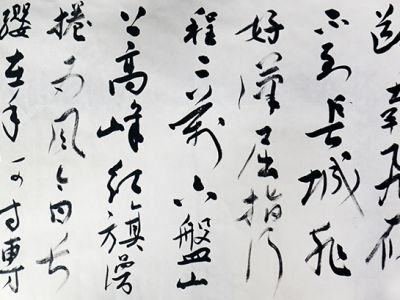 断南飛雁
不到長城非
好漢屈指行
程二萬六盤山
上高峰紅旗漫
捲西風今日長
纓在手何时縛